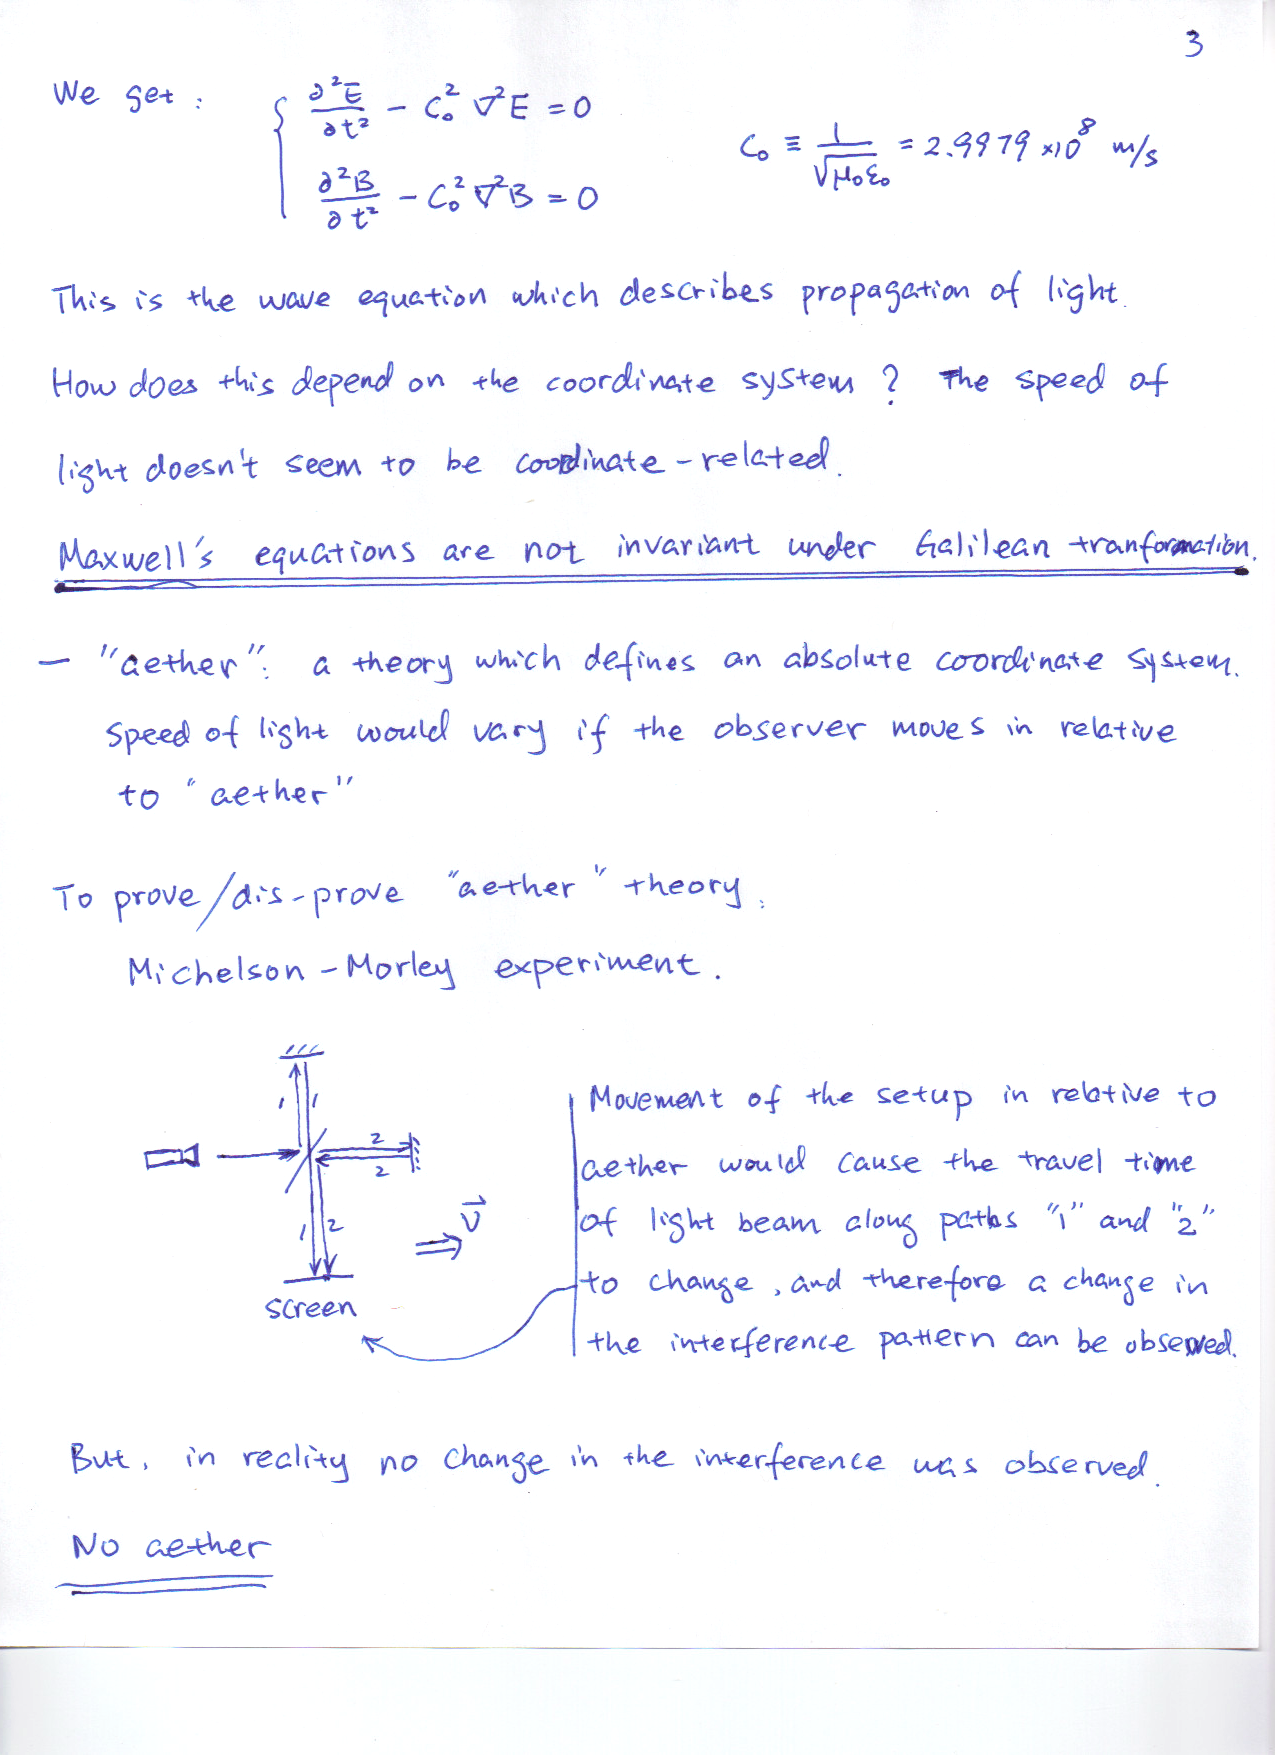 3
We get : { ∂²E/∂t² - C₀² ∇²E = 0
C₀ ≡ 1/√μ₀ε₀ = 2.9979 ×10⁸ m/s
∂²B/∂t² - C₀² ∇²B = 0
This is the wave equation which describes propagation of light.
How does this depend on the coordinate system ? The speed of
light doesn't seem to be coordinate - related.
Maxwell's equations are not invariant under Galilean tranformation.
— "aether": a theory which defines an absolute coordinate system.
Speed of light would vary if the observer moves in relative
to "aether"
To prove/dis-prove "aether" theory.
Michelson - Morley experiment.
1 1
2
2
1 2
v⃗
⇒
screen
Movement of the setup in relative to
aether would cause the travel time
of light beam along paths "1" and "2"
to change, and therefore a change in
the interference pattern can be observed.
But, in reality no change in the interference was observed.
No aether